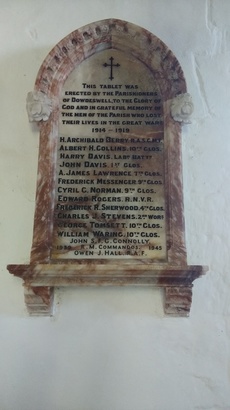 THIS TABLET WAS
ERECTED BY THE PARISHIONERS
OF DOWDESWELL, TO THE GLORY OF
GOD AND IN GRATEFUL MEMORY OF
THE MEN OF THE PARISH WHO LOST
THEIR LIVES IN THE GREAT WAR
1914 - 1919
H. ARCHIBALD DERBY
ALBERT H. COLLINS. 10TH GLOS.
HARRY DAVIS.
JOHN DAVIS. 1ST GLOS.
A. JAMES LAWRENCE. GLOS.
FREDERICK MESSENGER 9TH GLOS.
CYRIL G. NORMAN. 9TH GLOS.
EDWARD ROGERS. R.N.V.R.
FREDERICK R. SHERWOOD. 4TH GLOS.
CHARLES J. STEVENS. 2ND WORS
GEORGE TOMBS T. 10TH GLOS.
WILLIAM WARING. 10TH GLOS.
JOHN S.F.G. CONNOLLY.
1939 R.M. COMMANDOS. 1945
OWEN J. HALL. R.A.F.